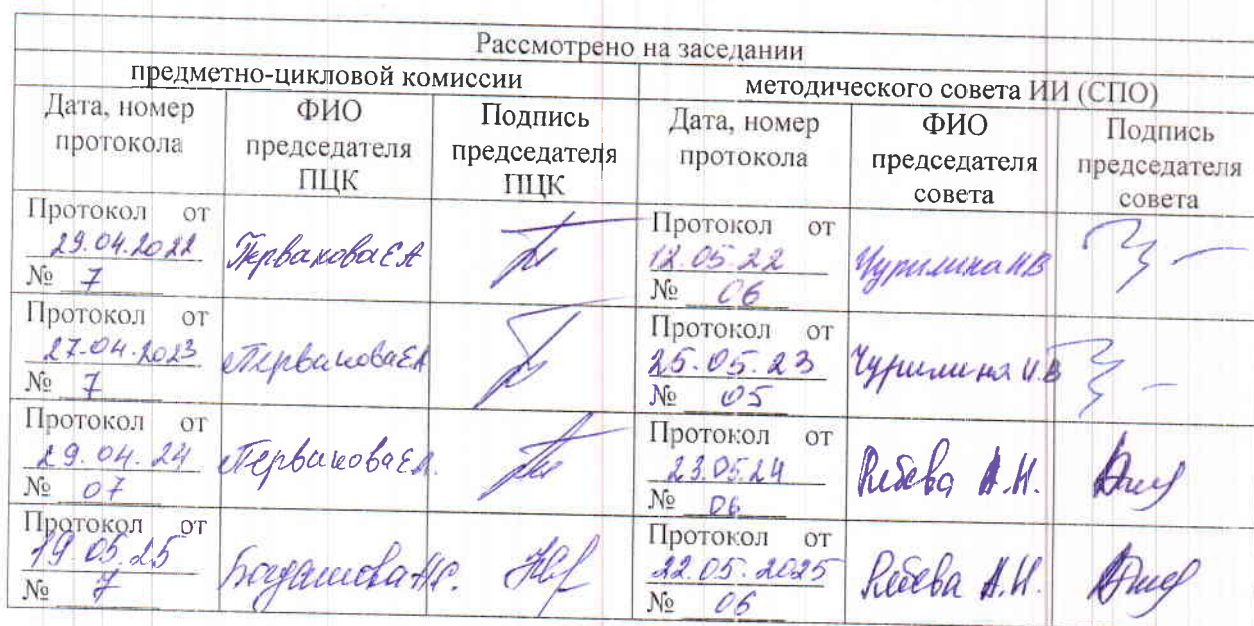 Рассмотрено на заседании
предметно-цикловой комиссии методического совета ИИ (СПО)
Дата, номер протокола ФИО председателя ПЦК Подпись председателя ПЦК Дата, номер протокола ФИО председателя совета Подпись председателя совета
Протокол от 29.04.2022 № 7 Первакова Е А Протокол от 12.05.22 № 06 Чурилина И В
Протокол от 27.04.2023 № 7 Первакова ЕА Протокол от 25.05.23 № 05 Чурилина И.В
Протокол от 29.04.24 № 07 Первакова Е.А. Протокол от 23.05.24 № 06 А.Н.
Протокол от 19.05.25 № 7 Протокол от 22.05.2025 № 06 А.Н.